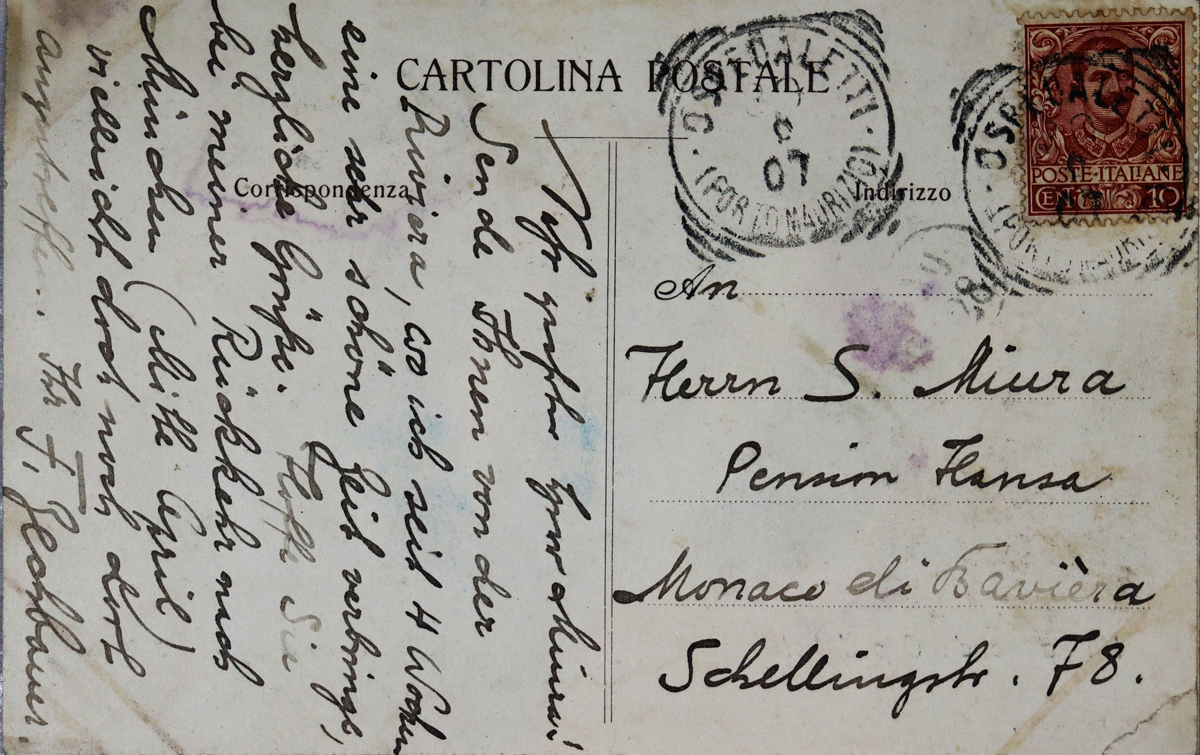 CARTOLINA POSTALE
Corrispondenza
Indirizzo
OSPEDALETTI
(PORTO MAURIZIO)
07
POSTE·ITALIANE
CENT. 10
OSPEDALETTI
Sehr geehrter Herr Miura!
Sende Ihnen von der
Riviera, wo ich seit 4 Wochen
eine sehr schöne Zeit verbringe,
herzliche Grüße. Hoffe Sie
bei meiner Rückkehr nach
München (Mitte April)
vielleicht dort noch dort
anzutreffen. Ihr F.
An
Herrn S. Miura
Pension Hansa
Monaco di Bavièra
Schellingstr. 78.